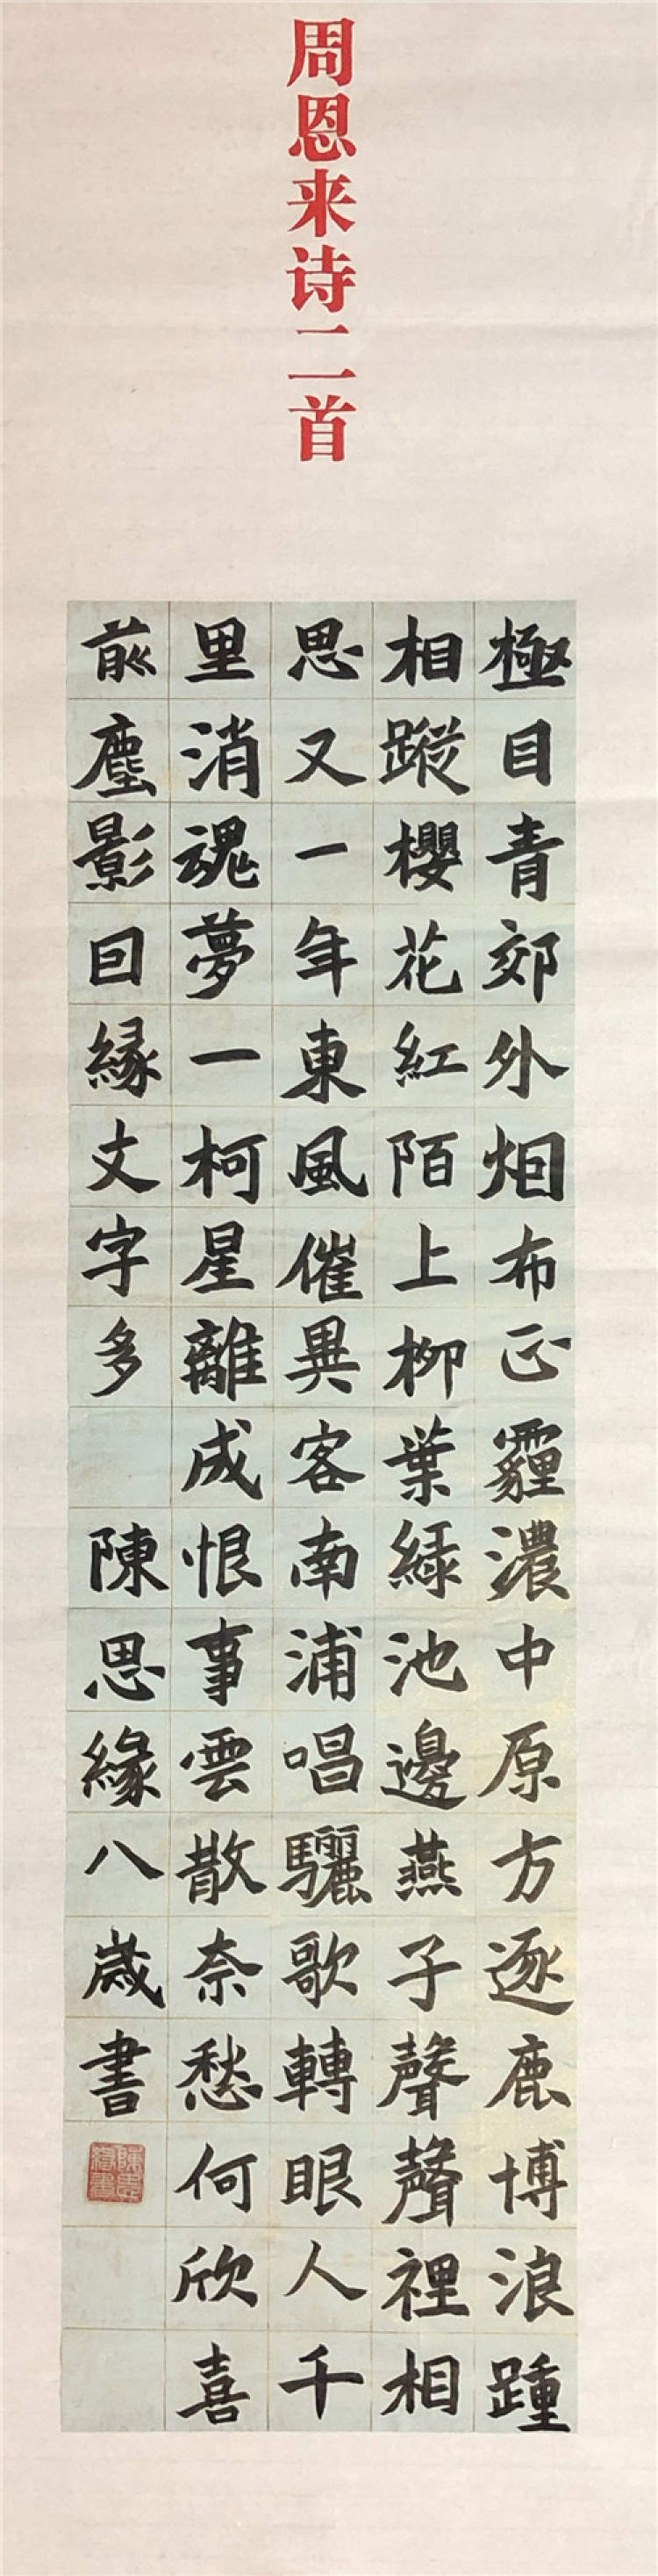 周恩来诗二首
極目青郊外烟布正霾濃中原方逐鹿博浪踵
相蹤櫻花紅陌上柳葉綠池邊燕子聲聲裡相
思又一年東風催異客南浦唱驪歌轉眼人千
里消魂夢一柯星離成恨事雲散奈愁何欣喜
前塵影因緣文字多　陳思緣八歲書